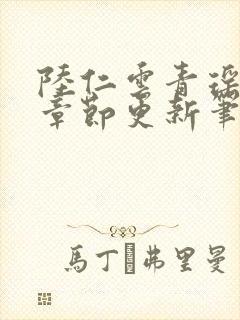 陸仁雲青瑤
章節更新筆
馬丁·弗里曼